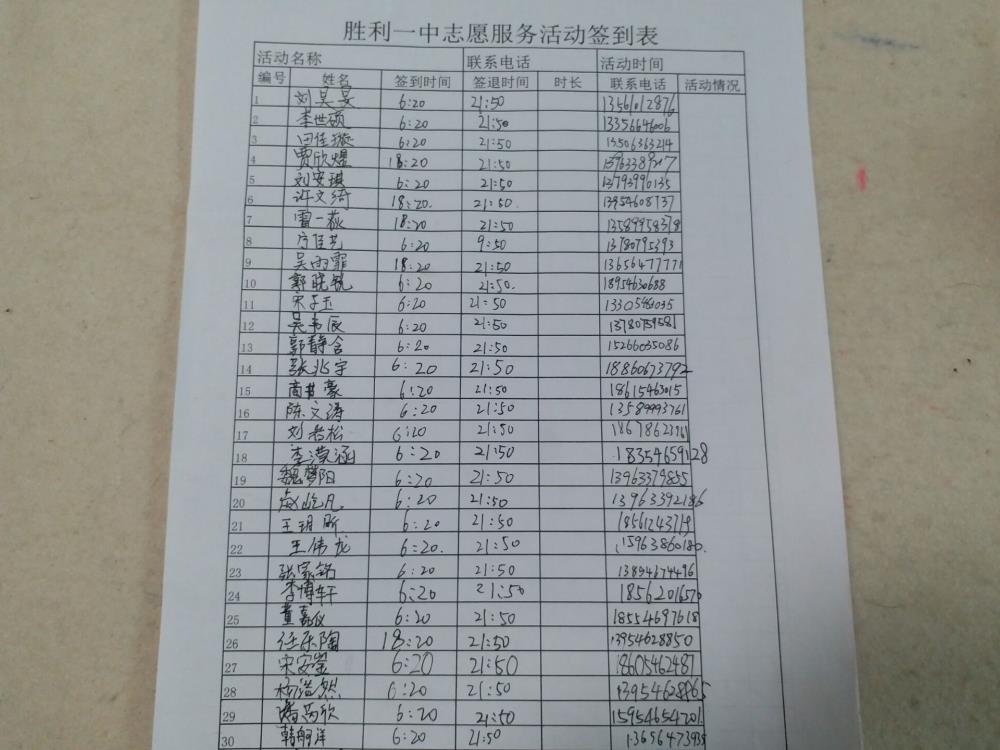 胜利一中志愿服务活动签到表
活动名称 联系电话 活动时间
编号 姓名 签到时间 签退时间 时长 联系电话 活动情况
1 刘昊旻 6:20 21:50 13561012876
2 李世硕 6:20 21:50 13356646006
3 田佳璇 6:20 21:50 13506363214
4 贾欣煜 18:20 21:50
5 刘安琪 6:20 21:50 13793990135
6 许文绮 18:20. 21:50. 13954608737
7 雷一萩 18:20 21:50 13589958378
8 佳艺 6:20 9:50 13780795393
9 吴雨霏 18:20 21:50 13656477771
10 郭晓 6:20 21:50. 18954630688
11 宋子玉 6:20 21:50 13305463035
12 吴韦辰 6:20 21:50 13780759581
13 郭静含 6:20 21:50 15266035086
14 张兆宇 6:20 21:50 18860673792
15 商甘豪 6:20 21:50 18615463015
16 陈文涛 6:20 21:50 13589993761
17 刘若松 6:20 21:50
18 李濛涵 6:20 21:50 18354659128
19 魏梦阳 6:20 21:50 13963379855
20 赵屹凡 6:20 21:50 13963392186
21 王玥昕 6:20 21:50 18561243719
22 王伟龙 6:20. 21:50 15963860180.
23 张家铭 6:20 21:50 13894674496
24 李博轩 6:20 21:50 18562016570
25 董嘉仪 6:20 21:50 18554697618
26 任乐陶 18:20 21:50 13954628850
27 宋安莹 6:20 21:50 18605462487
28 杨浩然 6:20 21:50
29 欣 6:20 21:50 15954654701
30 韩舸洋 6:20 21:50